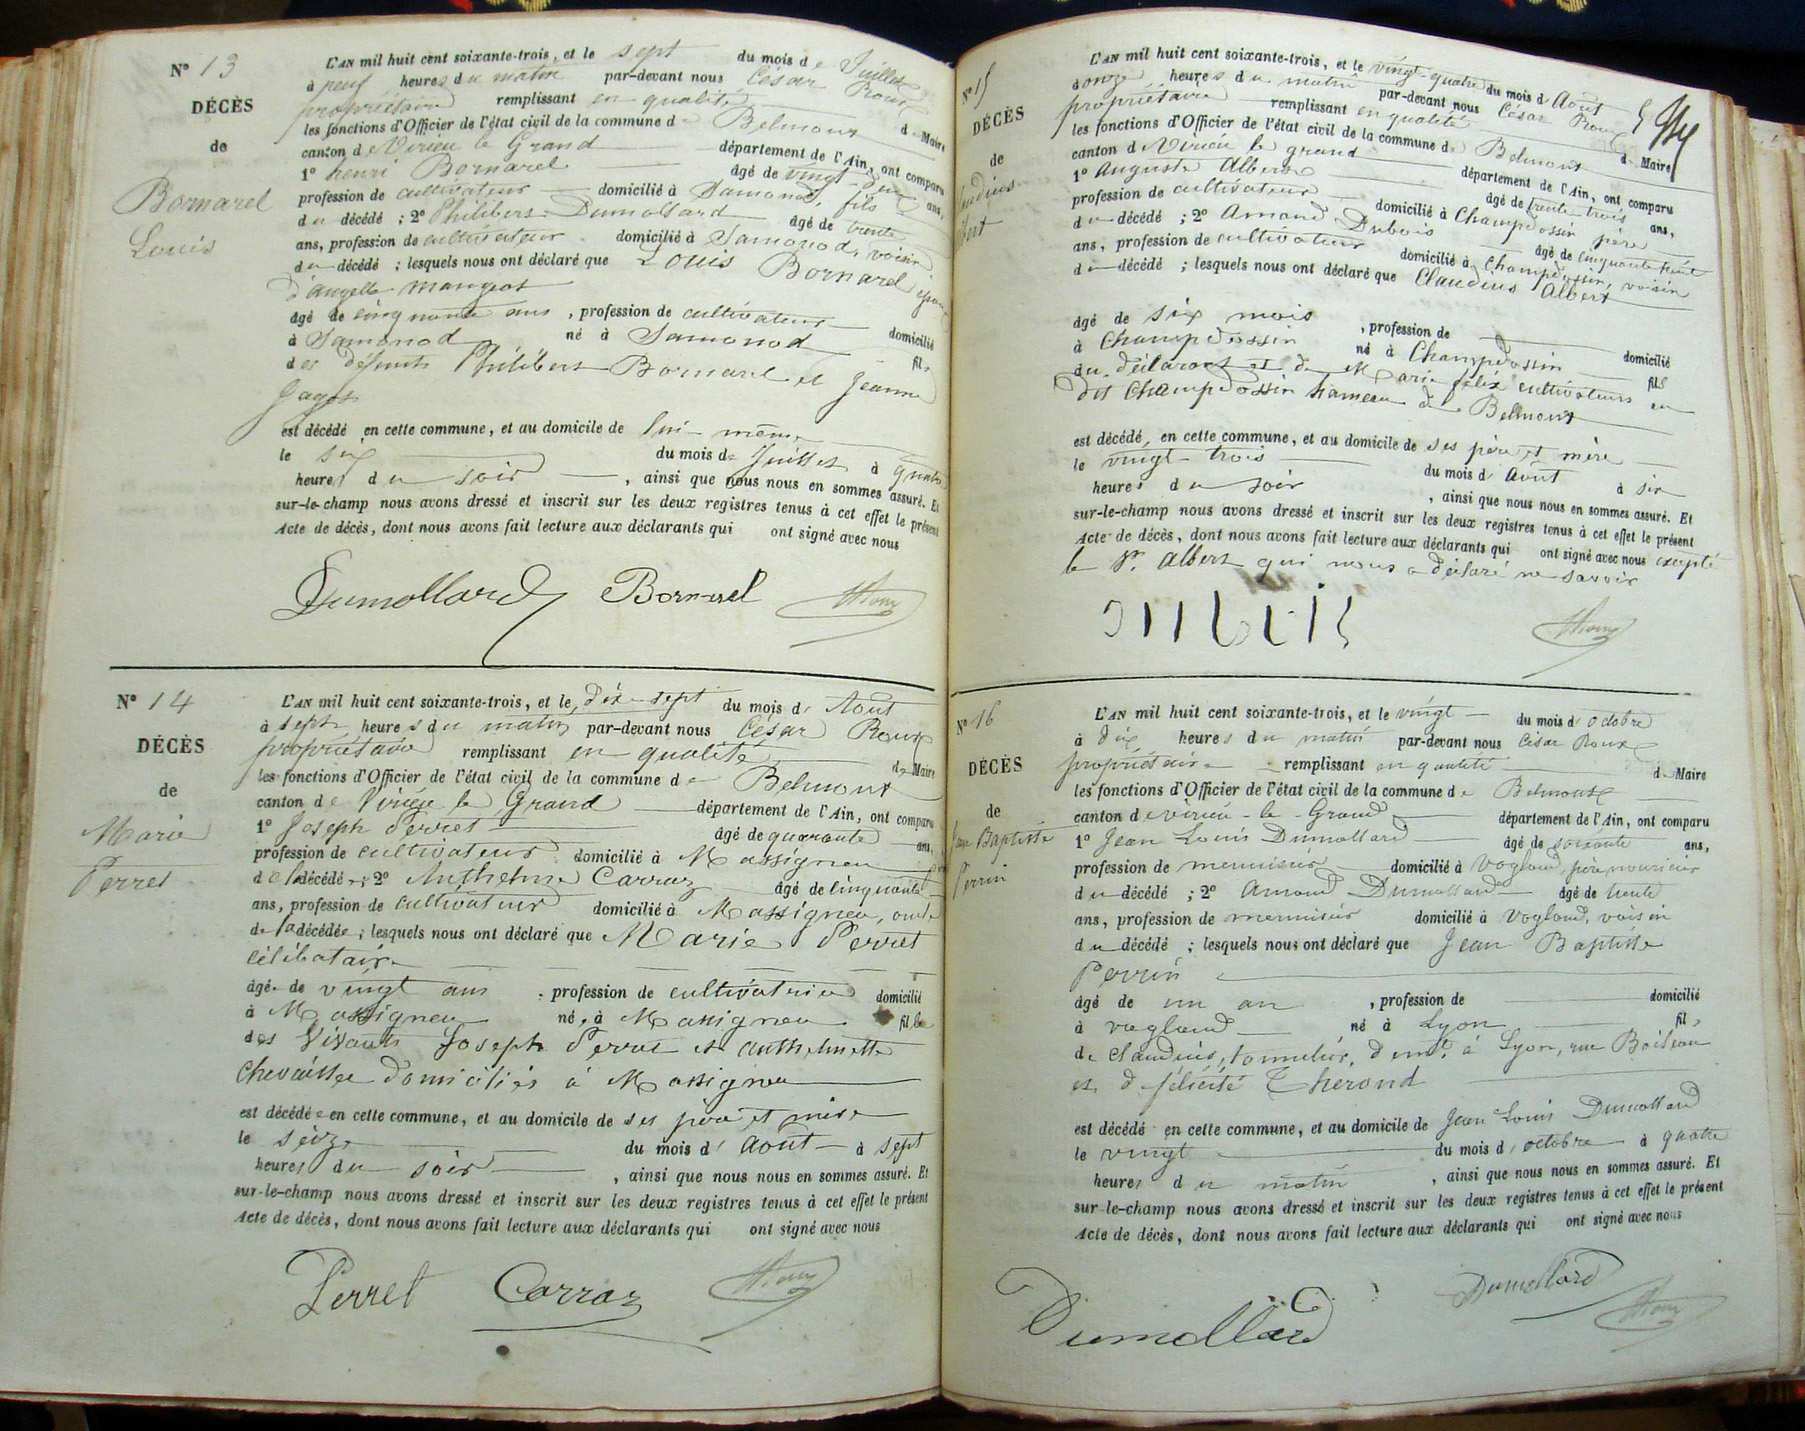 N° 13
DÉCÈS
de
Bornarel
Louis
L'AN mil huit cent soixante-trois, et le sept du mois de Juillet
à neuf heures du matin par-devant nous César Roux
propriétaire remplissant en qualité de Maire
les fonctions d'Officier de l'état civil de la commune de Belmont
canton de Virieu le Grand département de l'Ain, ont comparu
1° henri Bornarel âgé de vingt-deux ans,
profession de cultivateur domicilié à Samonod, fils
du décédé ; 2° Philibert Dumollard âgé de trente
ans, profession de cultivateur domicilié à Samonod, voisin
du décédé ; lesquels nous ont déclaré que Louis Bornarel époux
d'angelle mangeot
âgé de cinquante ans , profession de cultivateur domicilié
à Samonod né à Samonod fils
des défunts Philibert Bornarel et Jeanne
est décédé en cette commune, et au domicile de lui-même
le six du mois de Juillet à quatre
heures du soir , ainsi que nous nous en sommes assuré. Et
sur-le-champ nous avons dressé et inscrit sur les deux registres tenus à cet effet le présent
Acte de décès, dont nous avons fait lecture aux déclarants qui ont signé avec nous
Dumollard Bornarel Roux
N° 14
DÉCÈS
de
Marie
Perret
L'AN mil huit cent soixante-trois, et le dix-sept du mois d'Août
à sept heures du matin par-devant nous César Roux
propriétaire remplissant en qualité de Maire
les fonctions d'Officier de l'état civil de la commune de Belmont
canton de Virieu le Grand département de l'Ain, ont comparu
1° Joseph Perret âgé de quarante ans,
profession de cultivateur domicilié à Massigneu
de la décédée ; 2° Anthelme Carraz âgé de cinquante
ans, profession de cultivateur domicilié à Massigneu, oncle
de la décédée ; lesquels nous ont déclaré que Marie Perret
célibataire
âgé de vingt ans , profession de cultivatrice domicilié
à Massigneu né à Massigneu fille
des vivants Joseph Perret et anthelmette
domiciliés à Massigneu
est décédée en cette commune, et au domicile de ses père et mère
le seize du mois d'Août à sept
heures du soir , ainsi que nous nous en sommes assuré. Et
sur-le-champ nous avons dressé et inscrit sur les deux registres tenus à cet effet le présent
Acte de décès, dont nous avons fait lecture aux déclarants qui ont signé avec nous
Perret Carraz Roux
N° 15
DÉCÈS
de
L'AN mil huit cent soixante-trois, et le vingt-quatre du mois d'Août
à onze heures du matin par-devant nous César Roux
propriétaire remplissant en qualité de Maire
les fonctions d'Officier de l'état civil de la commune de Belmont
canton de Virieu le grand département de l'Ain, ont comparu
1° Auguste Albert âgé de trente-trois ans,
profession de cultivateur domicilié à Champdossin père
du décédé ; 2° Amand Dubois âgé de cinquante huit
ans, profession de cultivateur domicilié à Champdossin, voisin
du décédé ; lesquels nous ont déclaré que Claudius Albert
âgé de six mois , profession de domicilié
à Champdossin né à Champdossin fils
du déclarant et de Marie félix cultivateurs au
dit Champdossin hameau de Belmont
est décédé en cette commune, et au domicile de ses père et mère
le vingt-trois du mois d'Août à six
heures du soir , ainsi que nous nous en sommes assuré. Et
sur-le-champ nous avons dressé et inscrit sur les deux registres tenus à cet effet le présent
Acte de décès, dont nous avons fait lecture aux déclarants qui ont signé avec nous excepté
le Sr. Albert qui nous a déclaré ne savoir
Roux
N° 16
DÉCÈS
de
Jean Baptiste
Perrin
L'AN mil huit cent soixante-trois, et le vingt du mois d'octobre
à dix heures du matin par-devant nous César Roux
propriétaire remplissant en qualité de Maire
les fonctions d'Officier de l'état civil de la commune de Belmont
canton de virieu-le-Grand département de l'Ain, ont comparu
1° Jean Louis Dumollard âgé de soixante ans,
profession de menuisier domicilié à Vogland, père nouricier
du décédé ; 2° Amand Dumollard âgé de trente
ans, profession de menuisier domicilié à Vogland, voisin
du décédé ; lesquels nous ont déclaré que Jean Baptiste
Perrin
âgé de un an , profession de domicilié
à vogland né à Lyon fils
de Claudius, tonnelier, demt. à Lyon, rue Boileau
et de félicité Therond
est décédé en cette commune, et au domicile de Jean Louis Dumollard
le vingt du mois d'octobre à quatre
heures du matin , ainsi que nous nous en sommes assuré. Et
sur-le-champ nous avons dressé et inscrit sur les deux registres tenus à cet effet le présent
Acte de décès, dont nous avons fait lecture aux déclarants qui ont signé avec nous
Dumollard Dumollard Roux